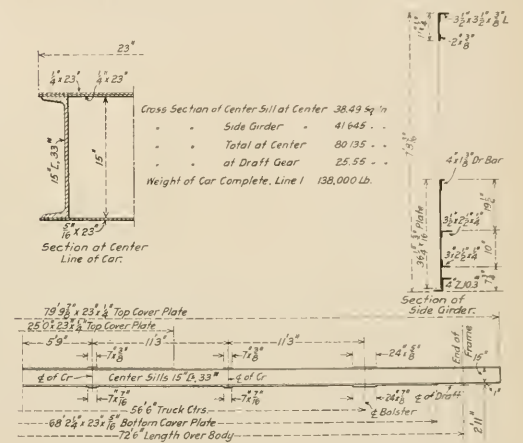 23"
1/4" x 23"
1/4" x 23"
15" [, 33#
15"
5/16" x 23"
Section at Center
Line of Car.
Cross Section of Center Sill at Center 38.49 Sq In
" " Side Girder " 41645 " "
" " Total at Center 80135 " "
" " at Draft Gear 25.55 " "
Weight of Car Complete, Line 1 138,000 Lb.
3 1/2" x 3 1/2" x 3/8" L
2" x 3/8"
4" x 1 3/8" Dr Bar
19 1/4"
3 1/2" x 2 1/2" x 1/4"
10"
3" x 2 1/2" x 1/4"
4" Z 10.3#
Section of
Side Girder.
79' 9 7/8" x 23" x 1/4" Top Cover Plate
25' 0" x 23" x 1/4" Top Cover Plate
5' 9"
11' 3"
11' 3"
7" x 3/8"
7" x 3/8"
24" x 5/8"
End of
Frame
15"
℄ of Cr
Center Sills 15" [s, 33#
℄ of Cr
7" x 7/16"
7" x 7/16"
7" x 7/16"
24" x 7/8"
℄ of Draft
56' 6" Truck Ctrs.
℄ Bolster
68' 2 1/4" x 23" x 5/16" Bottom Cover Plate
72' 6" Length Over Body
2' 11"